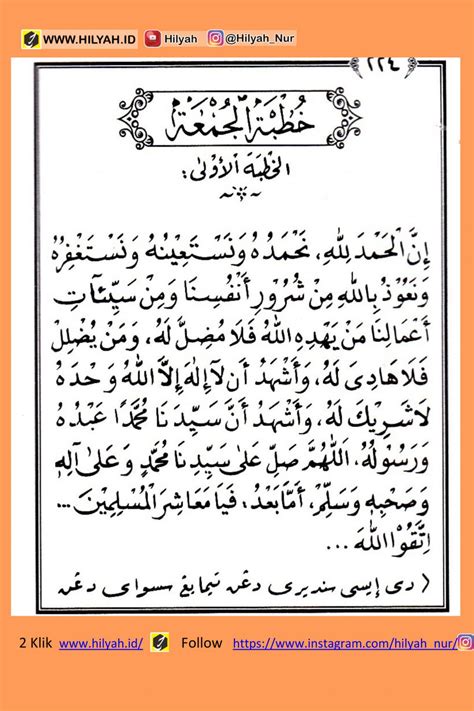 WWW.HILYAH.ID Hilyah @Hilyah_Nur
٢٢٤
خُطْبَةُ الْجُمُعَةِ
الخُطْبَةُ الْأُوْلَى:
إِنَّ الْحَمْدَ لِلّٰهِ، نَحْمَدُهُ وَنَسْتَعِيْنُهُ وَنَسْتَغْفِرُهُ
وَنَعُوْذُ بِاللّٰهِ مِنْ شُرُوْرِ أَنْفُسِنَا وَمِنْ سَيِّئَاتِ
أَعْمَالِنَا مَنْ يَهْدِهِ اللّٰهُ فَلَا مُضِلَّ لَهُ، وَمَنْ يُضْلِلْ
فَلَا هَادِيَ لَهُ، وَأَشْهَدُ أَنْ لَا إِلٰهَ إِلَّا اللّٰهُ وَحْدَهُ
لَا شَرِيْكَ لَهُ، وَأَشْهَدُ أَنَّ سَيِّدَنَا مُحَمَّدًا عَبْدُهُ
وَرَسُوْلُهُ، اَللّٰهُمَّ صَلِّ عَلَى سَيِّدِنَا مُحَمَّدٍ وَعَلَى آلِهِ
وَصَحْبِهِ وَسَلِّمْ، أَمَّا بَعْدُ: فَيَا مَعَاشِرَ الْمُسْلِمِيْنَ ...
اِتَّقُوا اللّٰهَ ...
( دي إيسي سنديري دڠن تيمايڠ سسواي دڠن
2 Klik www.hilyah.id/ Follow https://www.instagram.com/hilyah_nur/